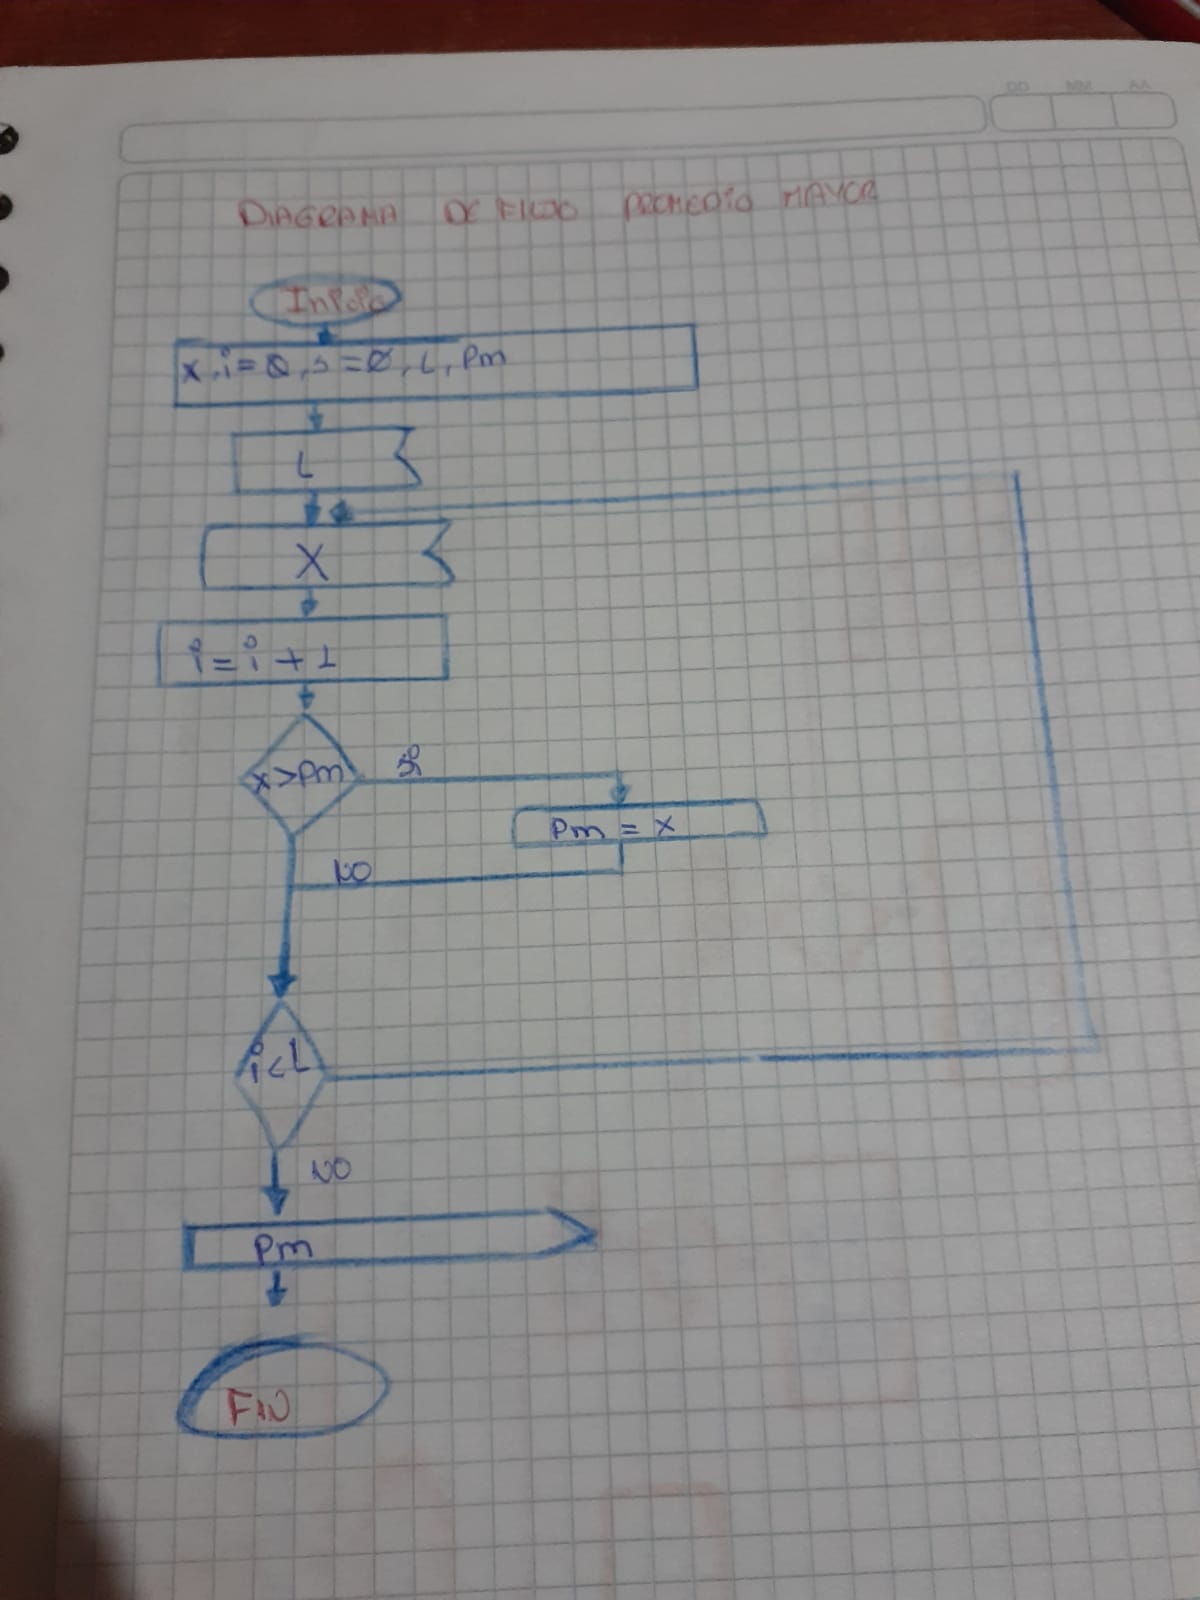 DD MM AA
DIAGRAMA DE FlUJO PROMEDIO MAYOR
INICIO
x, i=0, s=0, L, Pm
L
X
i=i+1
x>Pm
Si
Pm = X
NO
i<L
NO
Pm
FIN